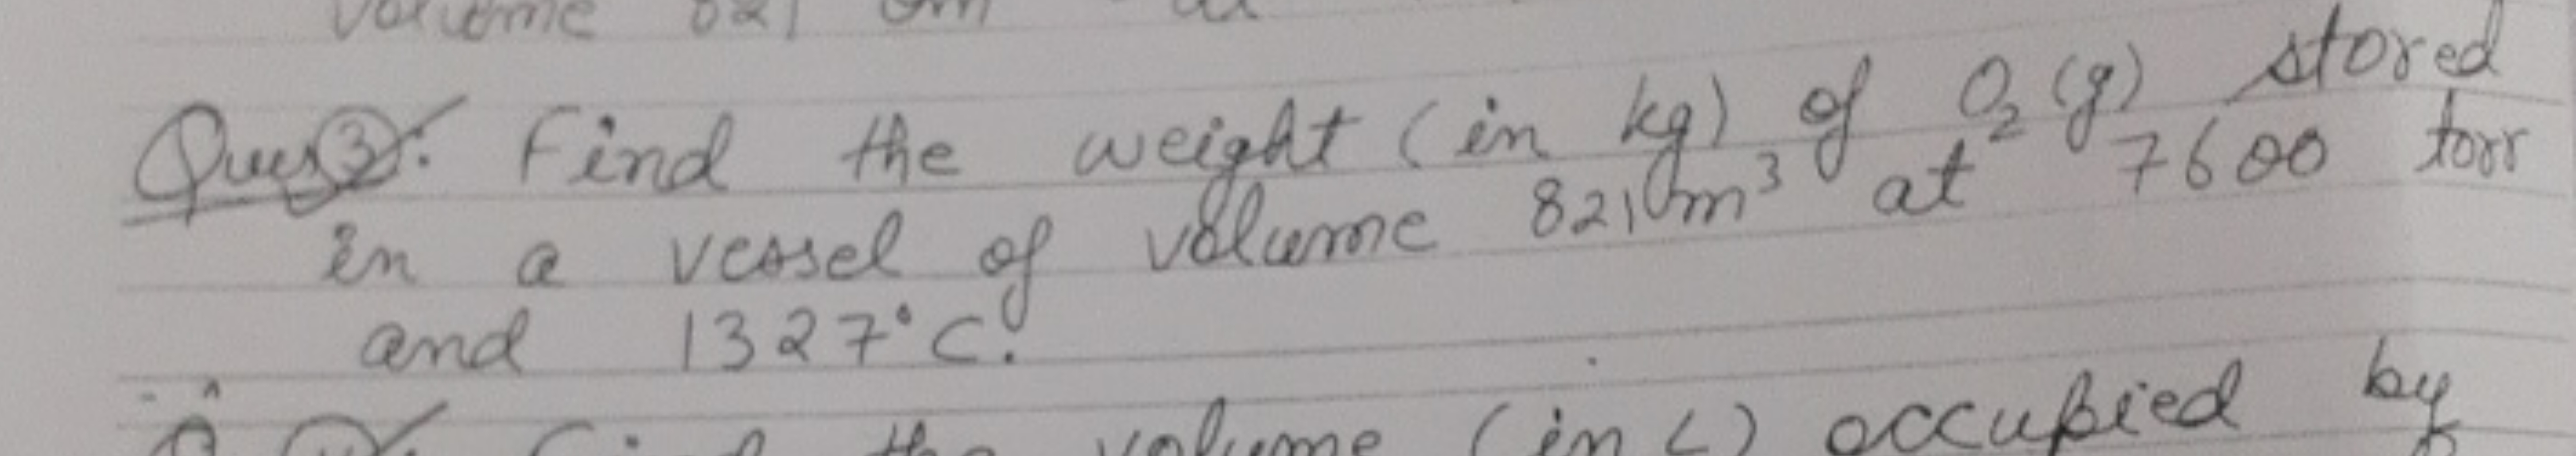 volume 821
Ques 3: Find the weight (in kg) of O₂(g) stored
in a vessel of volume 821 m³ at 7600 torr
and 1327°C.
the volume (in L) occupied by